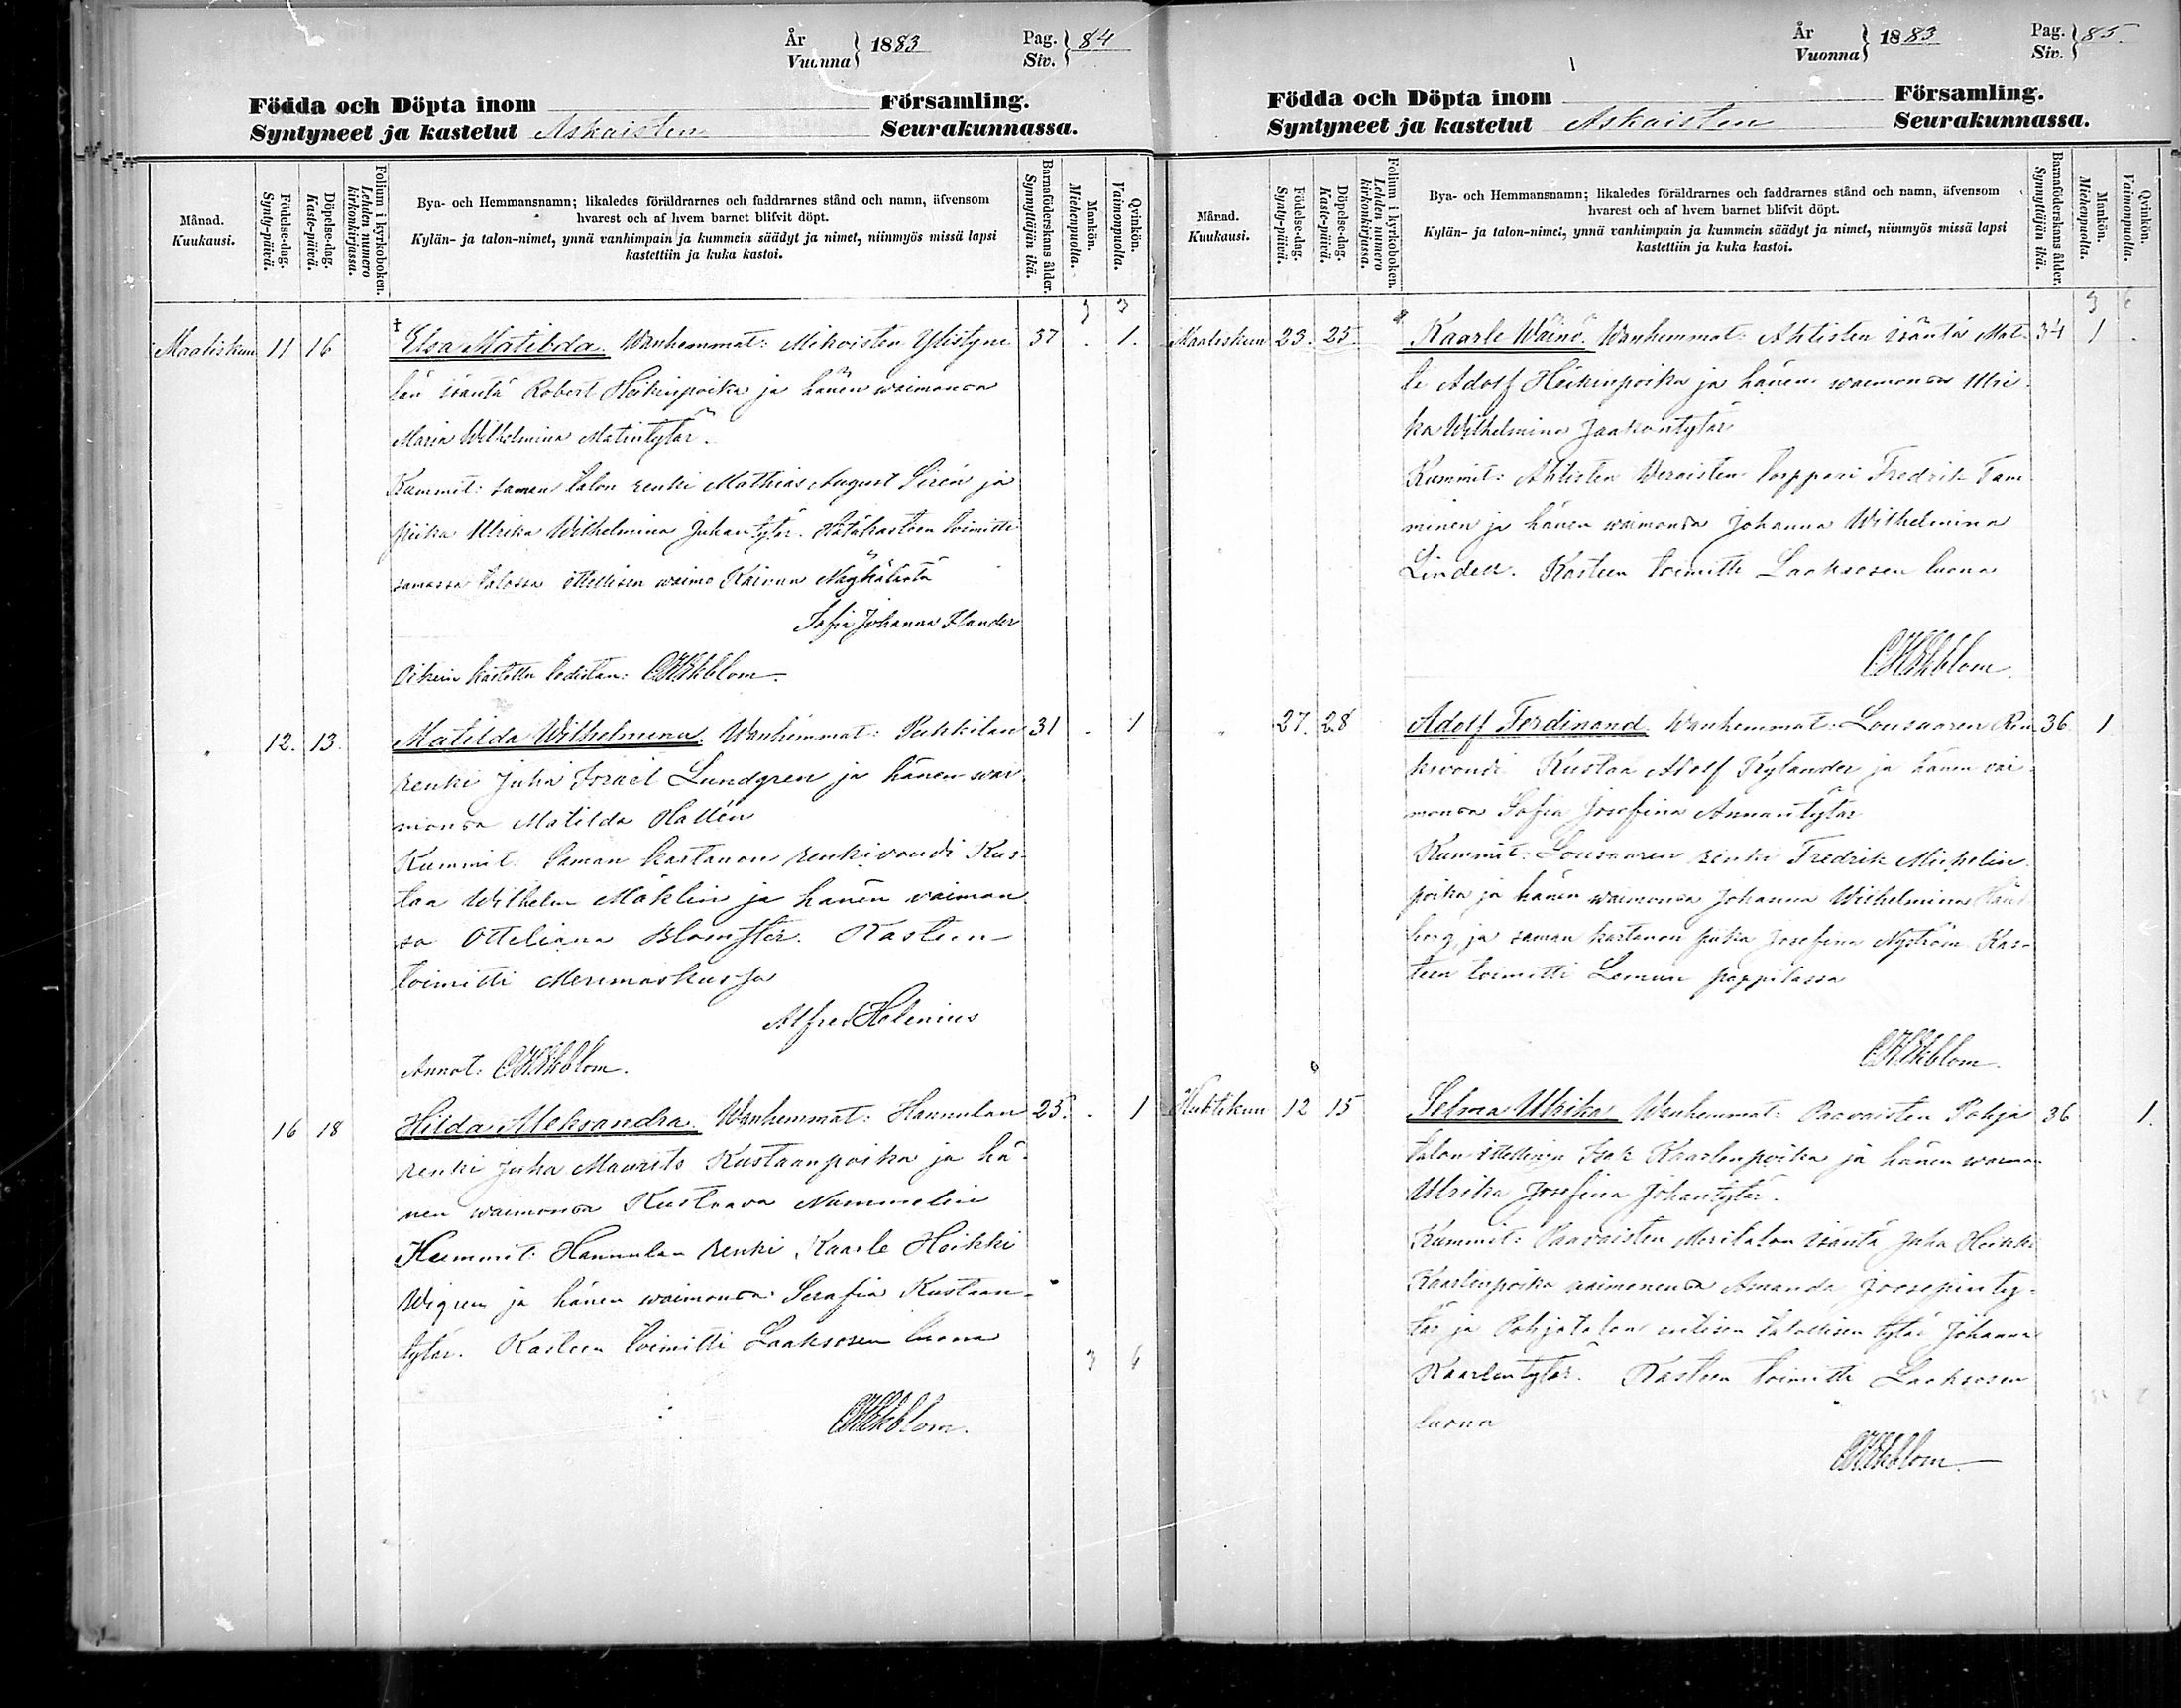 År
Vuonna
1883
Pag.
Siv.
84
Födda och Döpta inom Församling.
Syntyneet ja kastetut Askaisten Seurakunnassa.
Månad.
Kuukausi.
Födelse-dag.
Synty-päivä.
Döpelse-dag.
Kaste-päivä.
Folium i kyrkoboken.
Lehden numero
kirkonkirjassa.
Bya- och Hemmansnamn; likaledes föräldrarnes och faddrarnes stånd och namn, äfvensom
hvarest och af hvem barnet blifvit döpt.
Kylän- ja talon-nimet, ynnä vanhimpain ja kummein säädyt ja nimet, niinmyös missä lapsi
kastettiin ja kuka kastoi.
Barnaföderskans ålder.
Synnyttäjän ikä.
Mankön.
Miehenpuolta.
Qvinkön.
Vaimonpuolta.
3 3
Maaliskun 11 16 † Elsa Matilda. Wanhemmat: Mikoisten Ylistyni 37 . 1.
län isäntä Robert Heikinpoika ja hänen waimonsa
Maria Wilhelmina Matintytär.
Kummit: saman talon renki Mathias August Sirén ja
piika Ulrika Wilhelmina Juhantytär. Hätäkasteen toimitti
samassa talossa ittellisen waimo
Sofia Johanna Flander
Oikein kastettu todistan: CHEkblom.
" 12. 13. Matilda Wilhelmina. Wanhemmat: Pukkilan 31 . 1
renki Juha Israel Lundgren ja hänen wai
monsa Matilda Hallén
Kummit: Saman kartanon renkivouti Kus-
taa Wilhelm Mäklin ja hänen vaimon
sa Otteliana Blomster. Kasteen
toimitti Merimaskussa
Alfred Helenius
Annot: CHEkblom.
16 18 Hilda Aleksandra. Wanhemmat: Hannulan 25. . 1
renki Juha Maurits Kustaanpoika ja hä-
nen waimonsa Kustaava Nummelin
Kummit: Hannulan renki Kaarle Heikki
Wigren ja hänen waimonsa Serafia Kustaan-
tytär. Kasteen toimitti Laaksosen luona
3 6
CHEkblom.
År
Vuonna
1883
Pag.
Siv.
85.
Födda och Döpta inom Församling.
Syntyneet ja kastetut Askaisten Seurakunnassa.
Månad.
Kuukausi.
Födelse-dag.
Synty-päivä.
Döpelse-dag.
Kaste-päivä.
Folium i kyrkoboken.
Lehden numero
kirkonkirjassa.
Bya- och Hemmansnamn; likaledes föräldrarnes och faddrarnes stånd och namn, äfvensom
hvarest och af hvem barnet blifvit döpt.
Kylän- ja talon-nimei, ynnä vanhimpain ja kummein säädyt ja nimet, niinmyös missä lapsi
kastettiin ja kuka kastoi.
Barnaföderskans ålder.
Synnyttäjän ikä.
Mankön.
Miehenpuolta.
Qvinkön.
Vaimonpuolta.
3 6
Maaliskun 23. 25. Kaarle Wäinö. Wanhemmat: Ahtisten isäntä Mat- 34 1 .
ti Adolf Heikinpoika ja hänen waimonsa Ulri
ka Wilhelmina Jaakontytär
Kummit: Ahtisten torppari Fredrik Tam
minen ja hänen waimonsa Johanna Wilhelmina
Lindell. Kasteen toimitti Laaksosen luona
CHEkblom.
" 27. 28 Adolf Ferdinand. Wanhemmat: Lousaaren Ren 36 1
kivouti Kustaa Adolf Kylander ja hänen vai
monsa Sofia Josefina Annantytär
Kummit: Lousaaren renki Fredrik Michelin
poika ja hänen waimonsa Johanna Wilhelmina
berg, ja saman kartanon piika Josefina Nyström. Kas-
teen toimitti Lemun pappilassa
CHEkblom.
Huhtikuu 12 15 Selma Ulrika Wanhemmat: Paavaisten Pohja 36 1.
talon ittellinen Isak Kaarlenpoika ja hänen waimo
Ulrika Josefina Johantytär.
Kummit: Paavaisten Meritalon isäntä Juha Heikki
Kaarlenpoika vaimonensa Amanda Joosepinty-
tär ja Pohjatalon entisen talollisen tytär Johanna
Kaarlentytär. Kasteen toimitti Laaksosen
luona
CHEkblom.